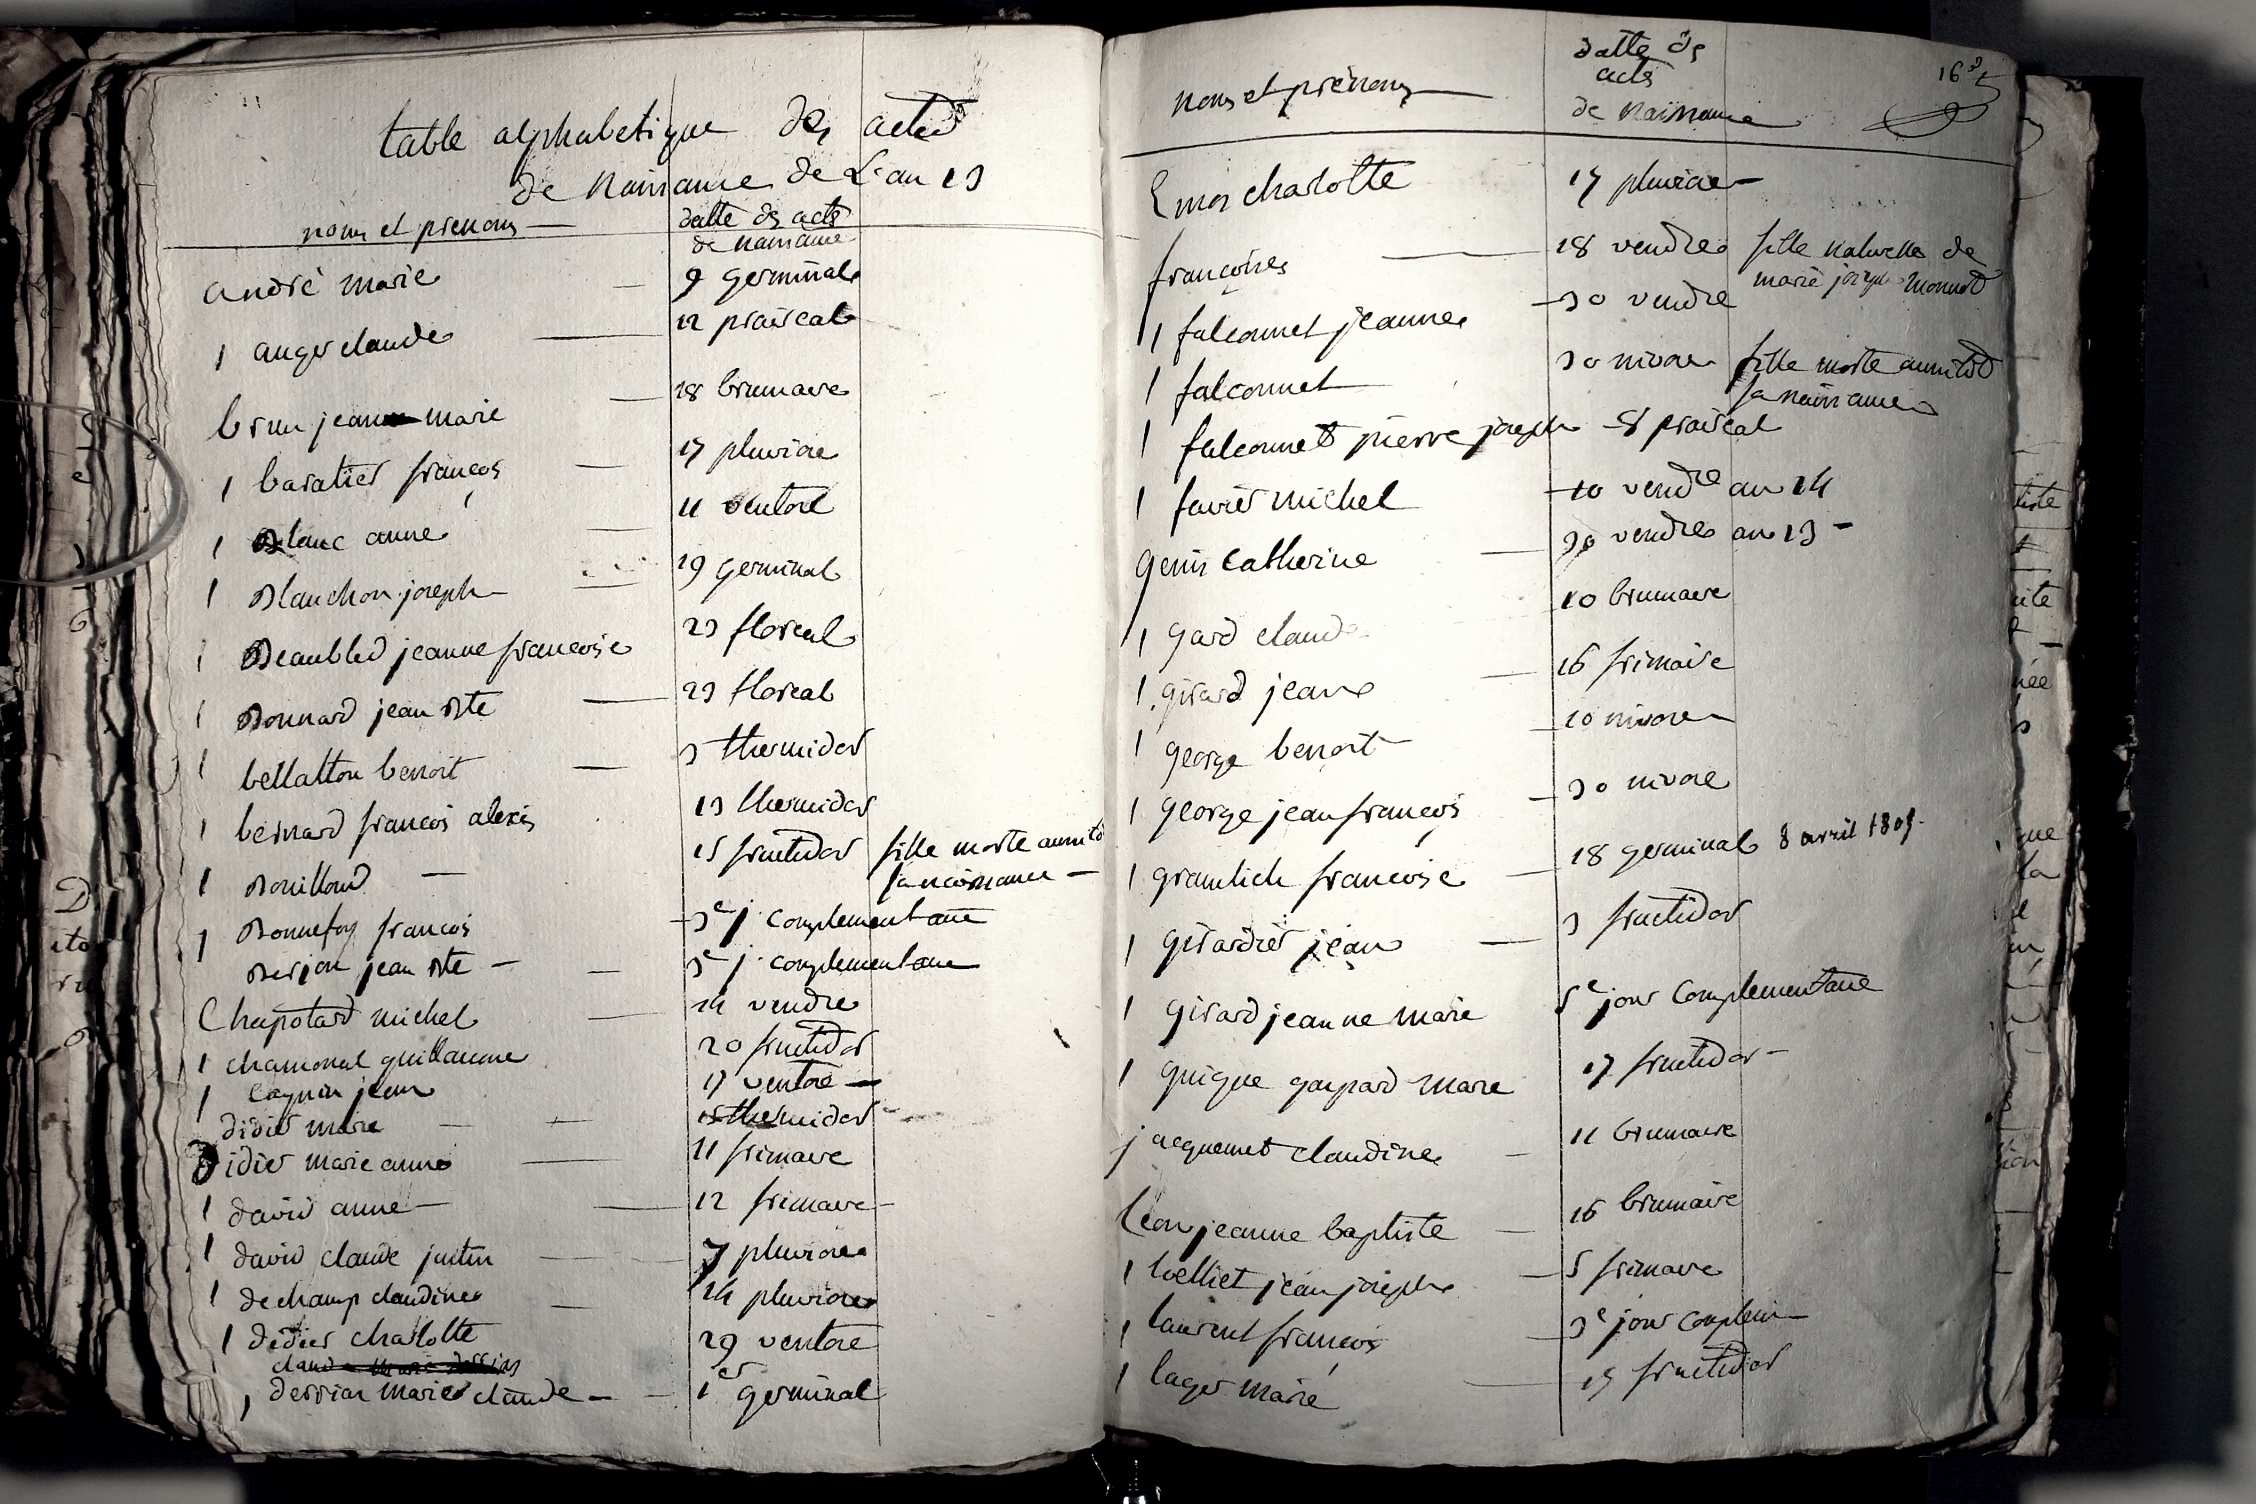 table alphabetique des actes
de naissance de L'an 13
noms et prenoms
datte des actes
de naissance
andré marie 9 germinal
1 auger claude 12 praireal
brun jean marie 18 brumaire
1 baratier francois 17 pluviose
1 Blanc anne 11 ventose
1 Blanchon joseph 19 germinal
1 Beaubled jeanne francoise 23 floreal
1 Bonnard jean Bte 23 floreal
1 bellatton benoit 3 thermidor
1 bernard francois alexis 13 thermidor
1 Bouilloud 15 fructidor fille morte aussitot
sa naissance
1 Bonnefoy francois 3e j. complementaire
Berjon jean Bte 3e j. complementaire
Chapotard michel 14 vendre
1 chamonal guillaume 20 fructidor
1 cagnin jean 17 ventose
didier marie 15 thermidor
Didier marie anne 11 frimaire
1 david anne 12 frimaire
1 david claude justin 7 pluviose
1 dechamp claudine 14 pluviose
1 didier charlotte 29 ventose
1 derrian marie claude 1er germinal
noms et prénoms
datte des
actes
de naissance
163
Emor charlotte 17 pluviose
francoises 18 vendre fille naturelle de
marie joseph monnod
1 falconnet jeanne 30 vendre
1 falconnet 30 nivose fille morte aussitot
sa naissance
1 falconnet pierre joseph 8 prairéal
1 favier michel 10 vendre an 14
genin catherine 30 vendre an 13
1 gard claude 10 brumaire
1 girard jean 16 frimaire
1 george benoit 10 nivose
1 george jean francois 30 nivose
1 gramlich francoise 18 germinal 8 avril 1805.
1 girardier jean 3 fructidor
1 girard jeanne marie 5e jour complementaire
1 guigue gaspard marie 17 fructidor
jacquemet claudine 11 brumaire
Leon jeanne baptiste 16 brumaire
1 loelliet jean joseph 5 frimaire
1 laurent francois 3e jour complem
1 lager marie 19 fructidor